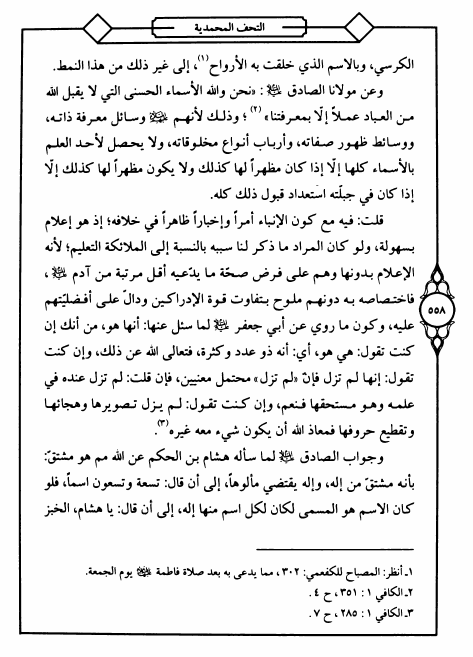 التحف المحمدية
الكرسي، وبالاسم الذي خلقت به الأرواح(١)، إلى غير ذلك من هذا النمط.
وعن مولانا الصادق ﷺ: «نحن والله الأسماء الحسنى التي لا يقبل الله
من العباد عملاً إلّا بمعرفتنا»(٢)؛ وذلك لأنهم ﷺ وسائل معرفة ذاته،
ووسائط ظهور صفاته، وأرباب أنواع مخلوقاته، ولا يحصل لأحد العلم
بالأسماء كلها إلّا إذا كان مظهراً لها كذلك ولا يكون مظهراً لها كذلك إلّا
إذا كان في جبلّته استعداد قبول ذلك كله.
قلت: فيه مع كون الإنباء أمراً وإخباراً ظاهراً في خلافه؛ إذ هو إعلام
بسهولة، ولو كان المراد ما ذكر لنا سببه بالنسبة إلى الملائكة التعليم؛ لأنه
الإعلام بدونها وهم على فرض صحّة ما يدعيه أقل مرتبة من آدم ،
فاختصاصه به دونهم ملوح بتفاوت قوة الإدراكين ودالّ على أفضليّتهم
عليه، وكون ما روي عن أبي جعفر لما سئل عنها: أنها هو، من أنك إن
كنت تقول: هي هو، أي: أنه ذو عدد وكثرة، فتعالى الله عن ذلك، وإن كنت
تقول: إنها لم تزل فإنّ «لم تزل» محتمل معنيين، فإن قلت: لم تزل عنده في
علمه وهو مستحقها فنعم، وإن كنت تقول: لم يزل تصويرها وهجائها
وتقطيع حروفها فمعاذ الله أن يكون شيء معه غيره(٣).
وجواب الصادق لما سأله هشام بن الحكم عن الله مم هو مشتق:
بأنه مشتق من إله، وإله يقتضي مألوهاً، إلى أن قال: تسعة وتسعون اسماً، فلو
كان الاسم هو المسمى لكان لكل اسم منها إله، إلى أن قال: يا هشام، الخبز
١ـ أنظر: المصباح للكفعمي: ٣٠٢، مما يدعى به بعد صلاة فاطمة يوم الجمعة.
٢ـ الكافي ١: ٣٥١، ح ٤.
٣ـ الكافي ١: ٢٨٥، ح ٧.
٥٥٨